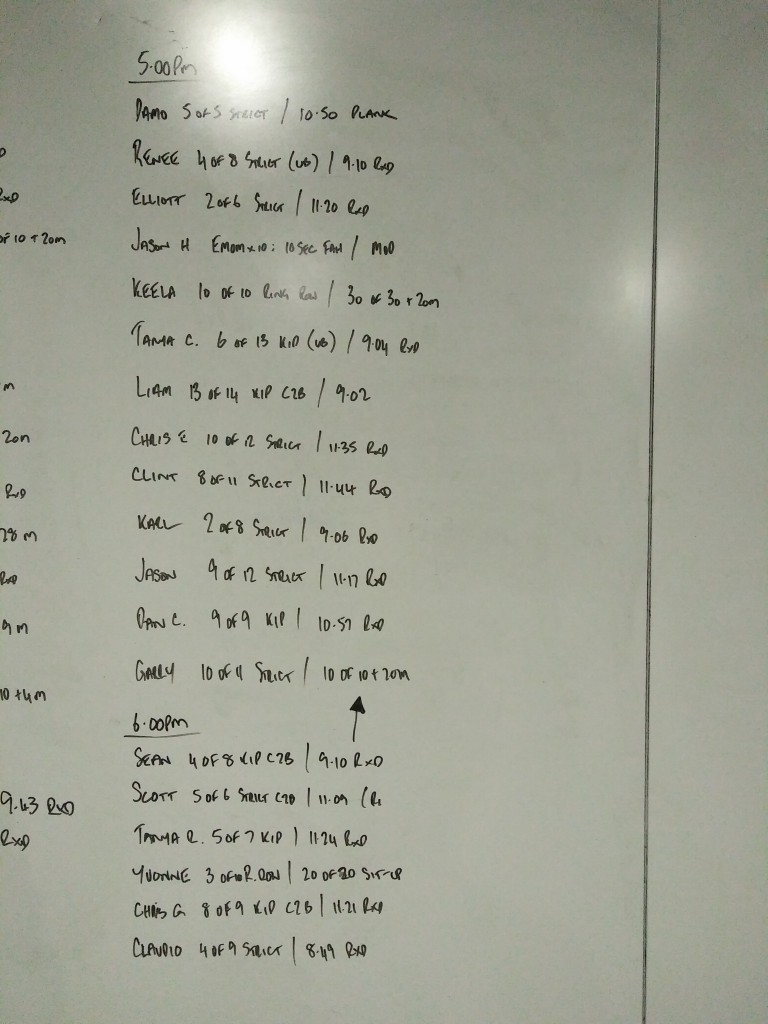 5.00pm
DAMO 5 OF 5 STRICT / 10.50 PLANK
RENEE 4 OF 8 STRICT (UB) / 9.10 RXD
ELLIOTT 2 OF 6 STRICT / 11.20 RXD
JASON H EMOM x 10: 10 SEC FAH / MOD
KEELA 10 OF 10 RING ROW / 30 OF 30 + 20m
TANYA C. 6 OF 13 KIP (UB) / 9.04 RXD
LIAM 13 OF 14 KIP C2B / 9.02
CHRIS E 10 OF 12 STRICT / 11.35 RXD
CLINT 8 OF 11 STRICT / 11.44 RXD
KARL 2 OF 8 STRICT / 9.06 RXD
JASON 9 OF 12 STRICT / 11.17 RXD
DAN C. 9 OF 9 KIP / 10.57 RXD
GARRY 10 OF 11 STRICT / 10 OF 10 + 20m
6.00pm
SEAN 4 OF 8 KIP C2B / 9.10 RXD
SCOTT 5 OF 6 STRICT C2B / 11.09 (R
TANYA R. 5 OF 7 KIP / 11.24 RXD
YVONNE 3 OF 10 R. ROW / 20 OF 20 SIT-UP
CHRIS G 8 OF 9 KIP C2B / 11.21 RXD
CLAUDIO 4 OF 9 STRICT / 8.49 RXD
RXD
OF 10 + 20m
m
20m
RXD
28m
RXD
9m
10 + 4m
9.43 RXD
RXD